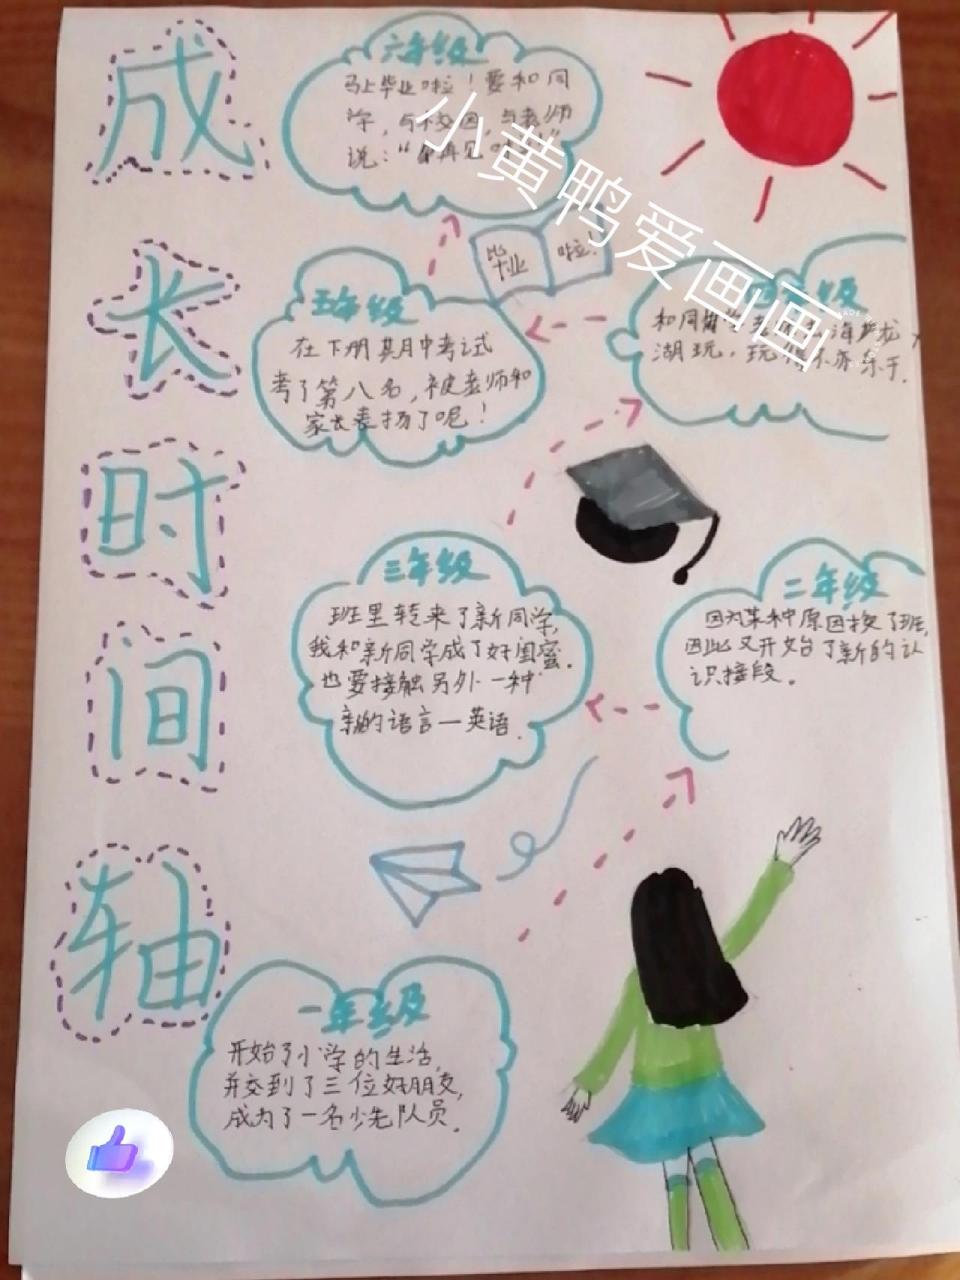 成长时间轴
六年级
马上毕业啦！要和同
学，与
说：“
毕业 啦！
五年级
在下册其月中考试
考了第八名，被老师和
家长表扬了呢！
四年级
和同
湖玩，玩得不亦乐乎.
三年级
班里转来了新同学，
我和新同学成了好闺蜜.
也要接触另外一种
新的语言一英语.
二年级
因为某种原因换了班，
因此又开始了新的认
识接段.
一年级
开始了小学的生活，
并交到了三位好朋友，
成为了一名少先队员.
小黄鸭爱画画